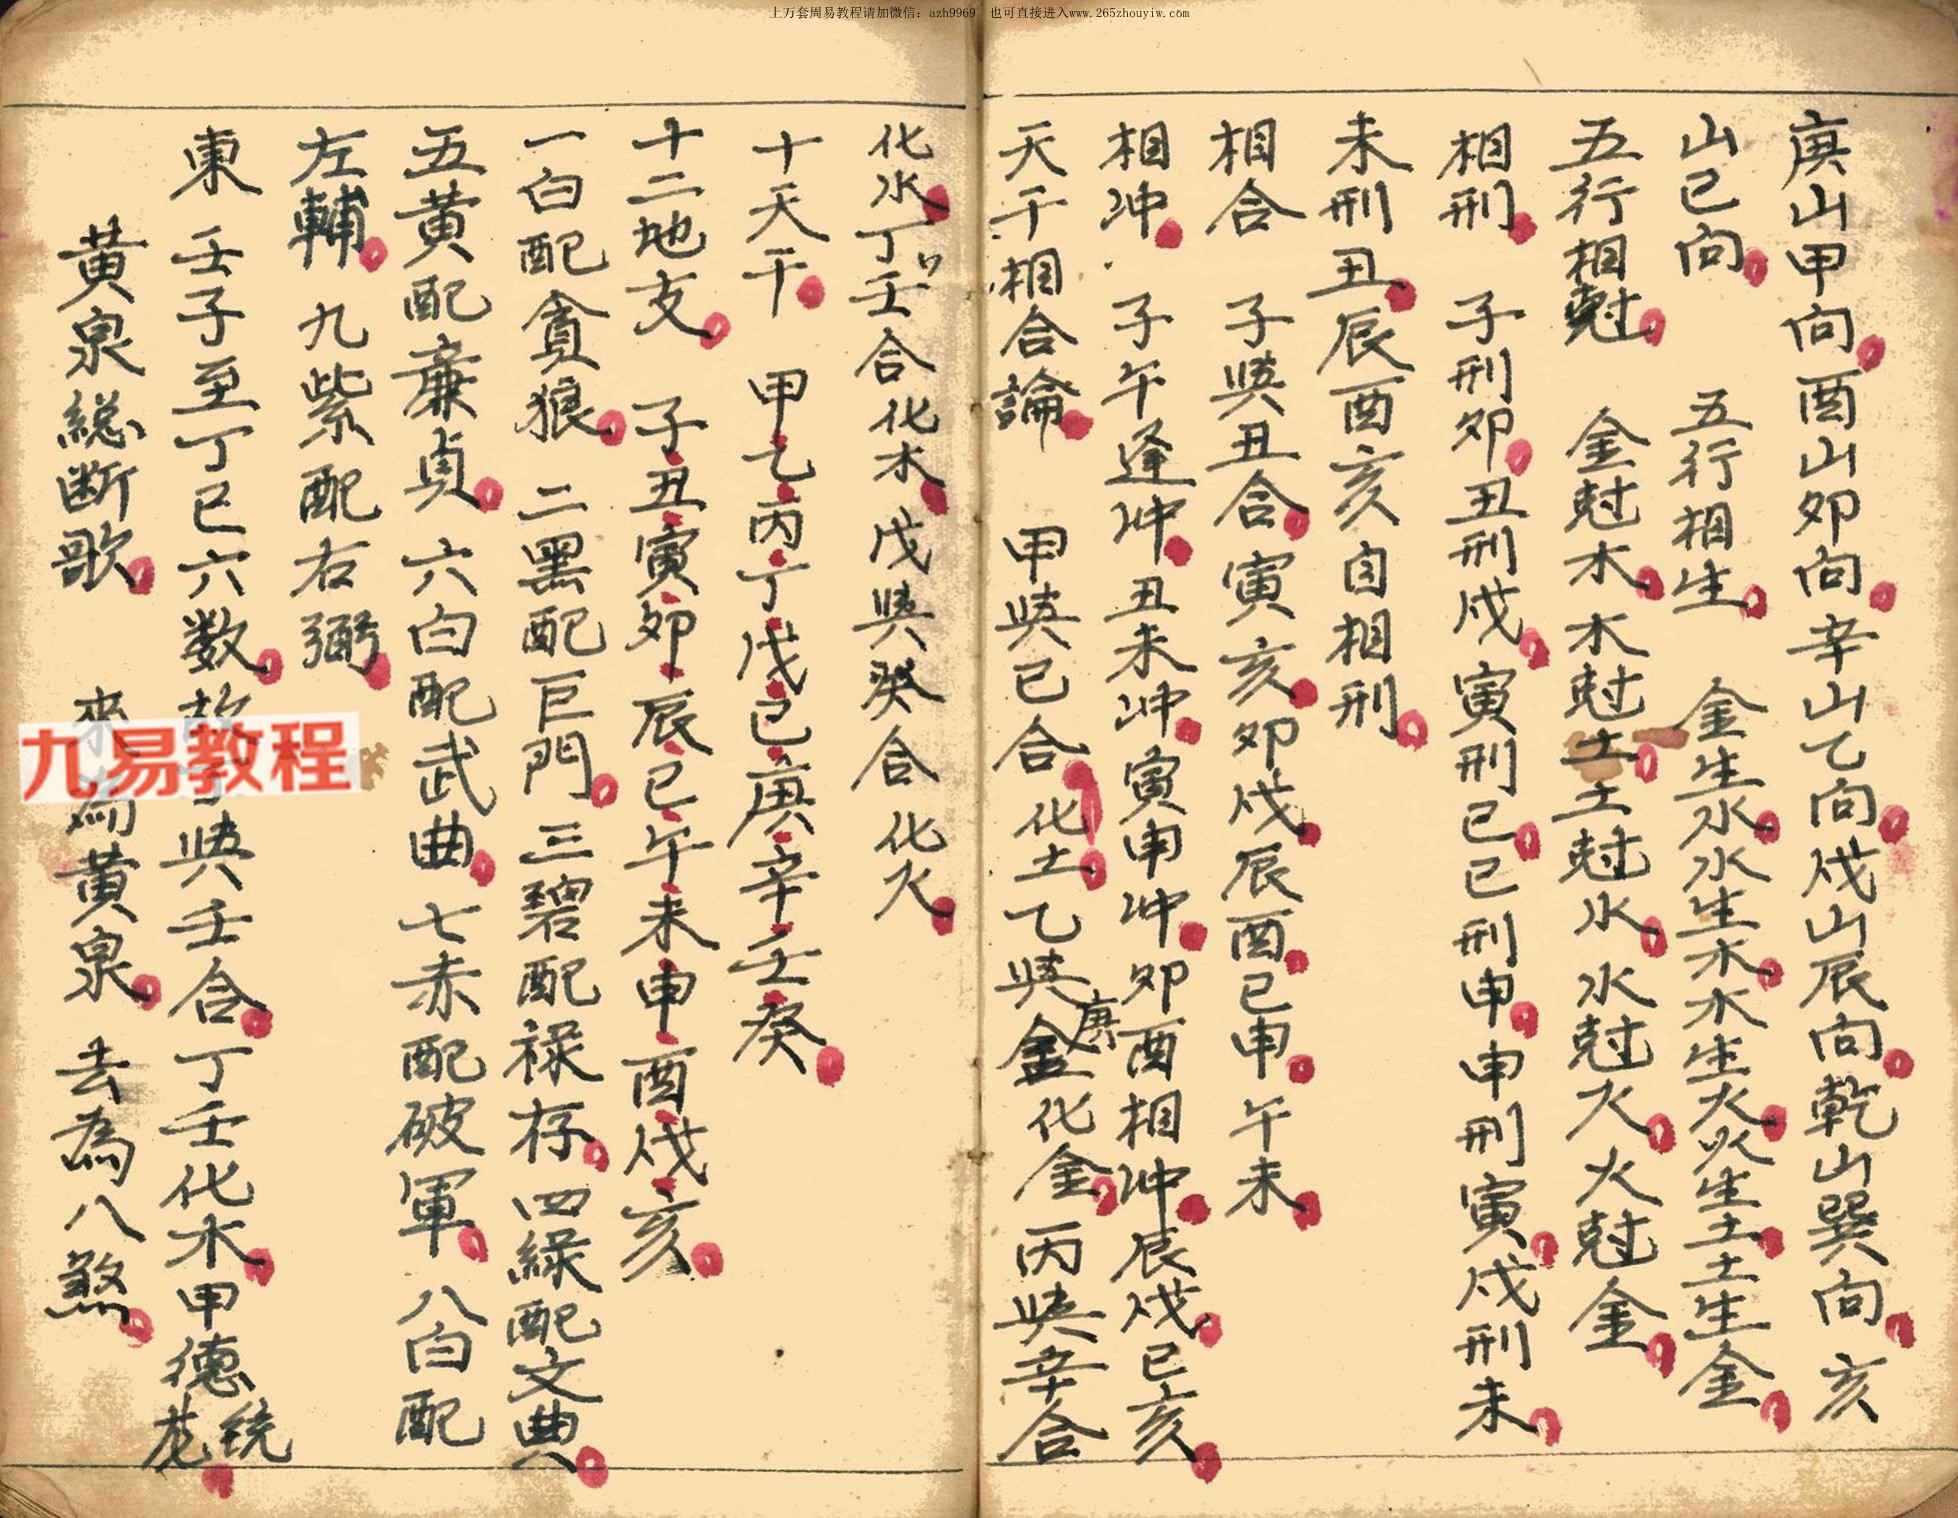 上万套周易教程请加微信：azh9969　也可直接进入www.265zhouyiw.com
庚山甲向酉山卯向辛山乙向戌山辰向乾山巽向亥
山巳向　五行相生　金生水水生木水生火火生土土生金
五行相尅　金尅木木尅土土尅水水尅火火尅金
相刑　子刑卯丑刑戌寅刑巳巳刑申申刑寅戌刑未
未刑丑辰酉亥自相刑
相合　子與丑合寅亥卯戌辰酉巳申午未
相冲　子午逢冲丑未冲寅申冲卯酉相冲辰戌巳亥
天干相合論　甲與己合化土乙與庚金化金丙與辛合
化水丁壬合化木戊與癸合化火
十天干　甲乙丙丁戊己庚辛壬癸
十二地支　子丑寅卯辰巳午未申酉戌亥
一白配貪狼　二黑配巨門三碧配祿存四綠配文典
五黄配廉貞　六白配武曲七赤配破軍　八白配
左輔　九紫配右弼
東　壬子至丁巳六数　與壬合丁壬化木甲德统龙
黄泉総断歌　來為黄泉　去為八煞
九易教程